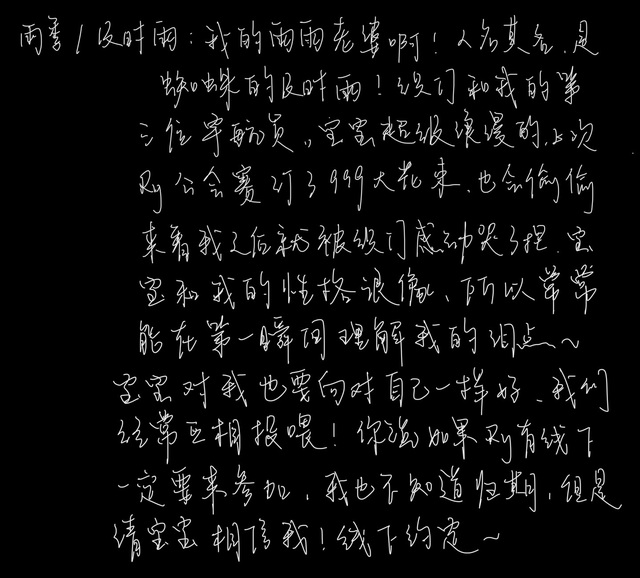 雨季/及时雨:我的雨雨老婆啊!人名其名,是
蜘蛛的及时雨!织订和我的第
三位宇航员,宝宝超级浪漫的,上次
Ry公会赛订了999大花束,也会偷偷
来看我之后就被织订感动哭了捏,宝
宝和我的性格很像、所以常常
能在第一瞬间理解我的泪点~
宝宝对我也要向对自己一样好、我们
经常互相投喂!你说如果Ry有线下
一定要来参加,我也不知道归期,但是
请宝宝相信我!线下约定~